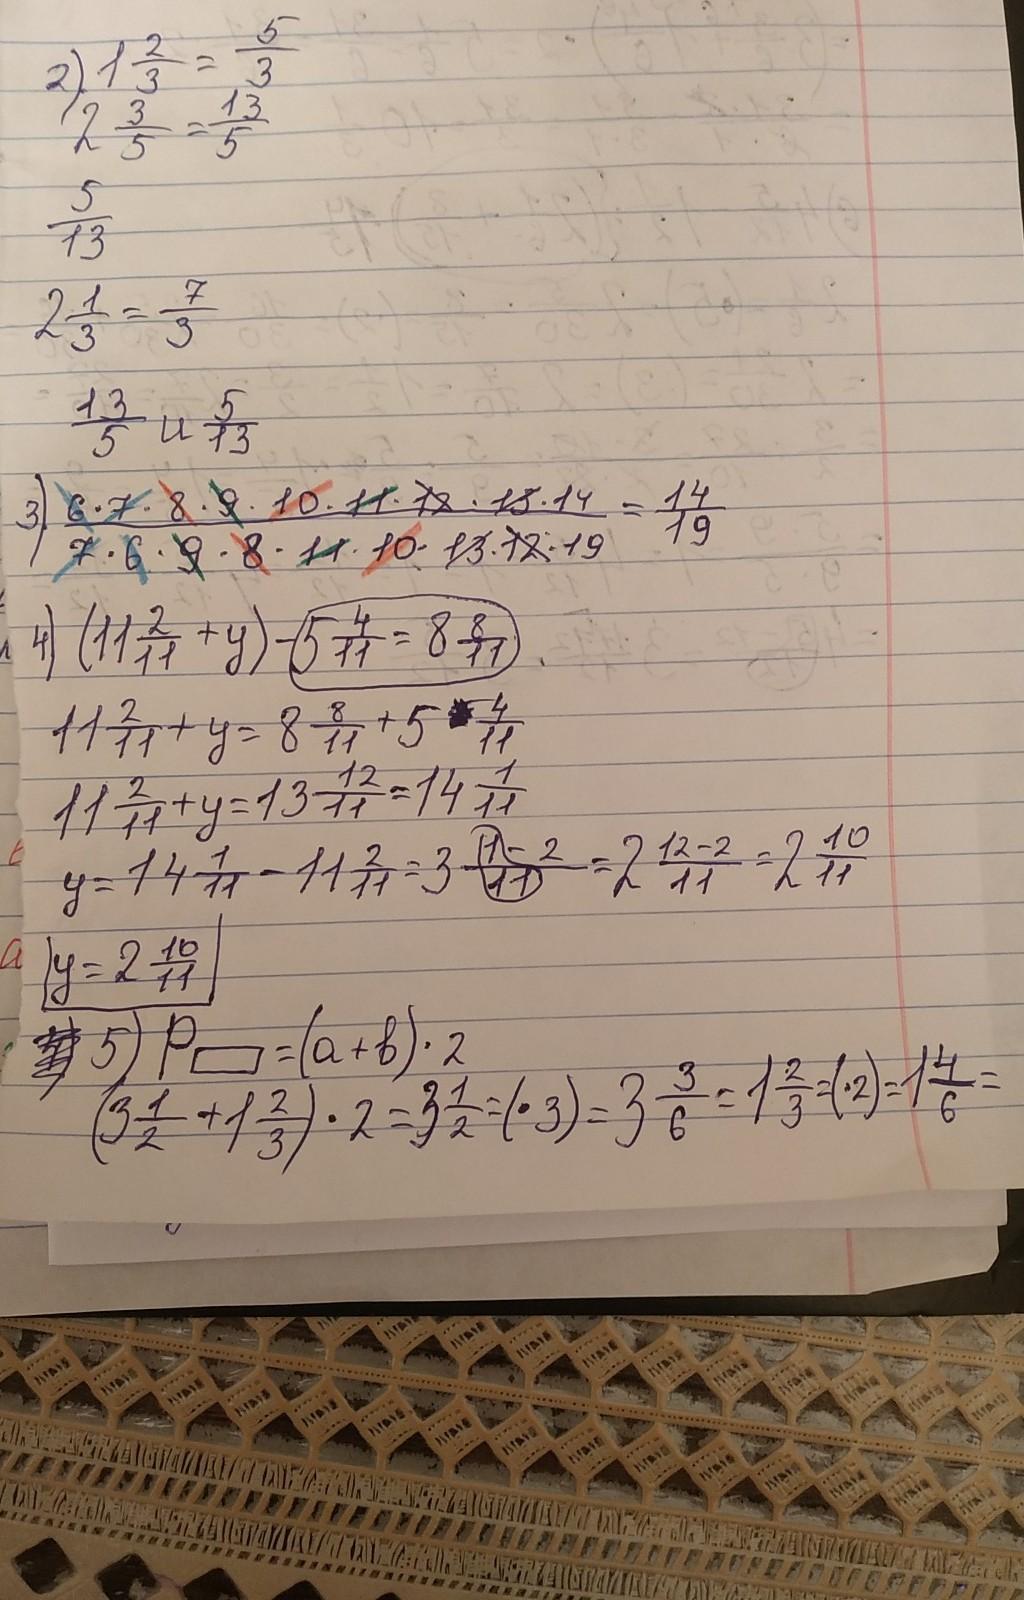 2). 1 2/3 = 5/3
2 3/5 = 13/5
5/13
2 1/3 = 7/3
13/5 и 5/13
3) 6·7·8·9·10·11·12·13·14 / 7·6·9·8·11·10·13·12·19 = 14/19
4) (11 2/11 + y) - 5 4/11 = 8 8/11
11 2/11 + y = 8 8/11 + 5 4/11
11 2/11 + y = 13 12/11 = 14 1/11
y = 14 1/11 - 11 2/11 = 3 1-2/11 = 2 12-2/11 = 2 10/11
y = 2 10/11
5) P▭ = (a+b)·2
(3 1/2 + 1 2/3)·2 = 3 1/2 = (·3) = 3 3/6 = 1 2/3 = (·2) = 1 4/6 =